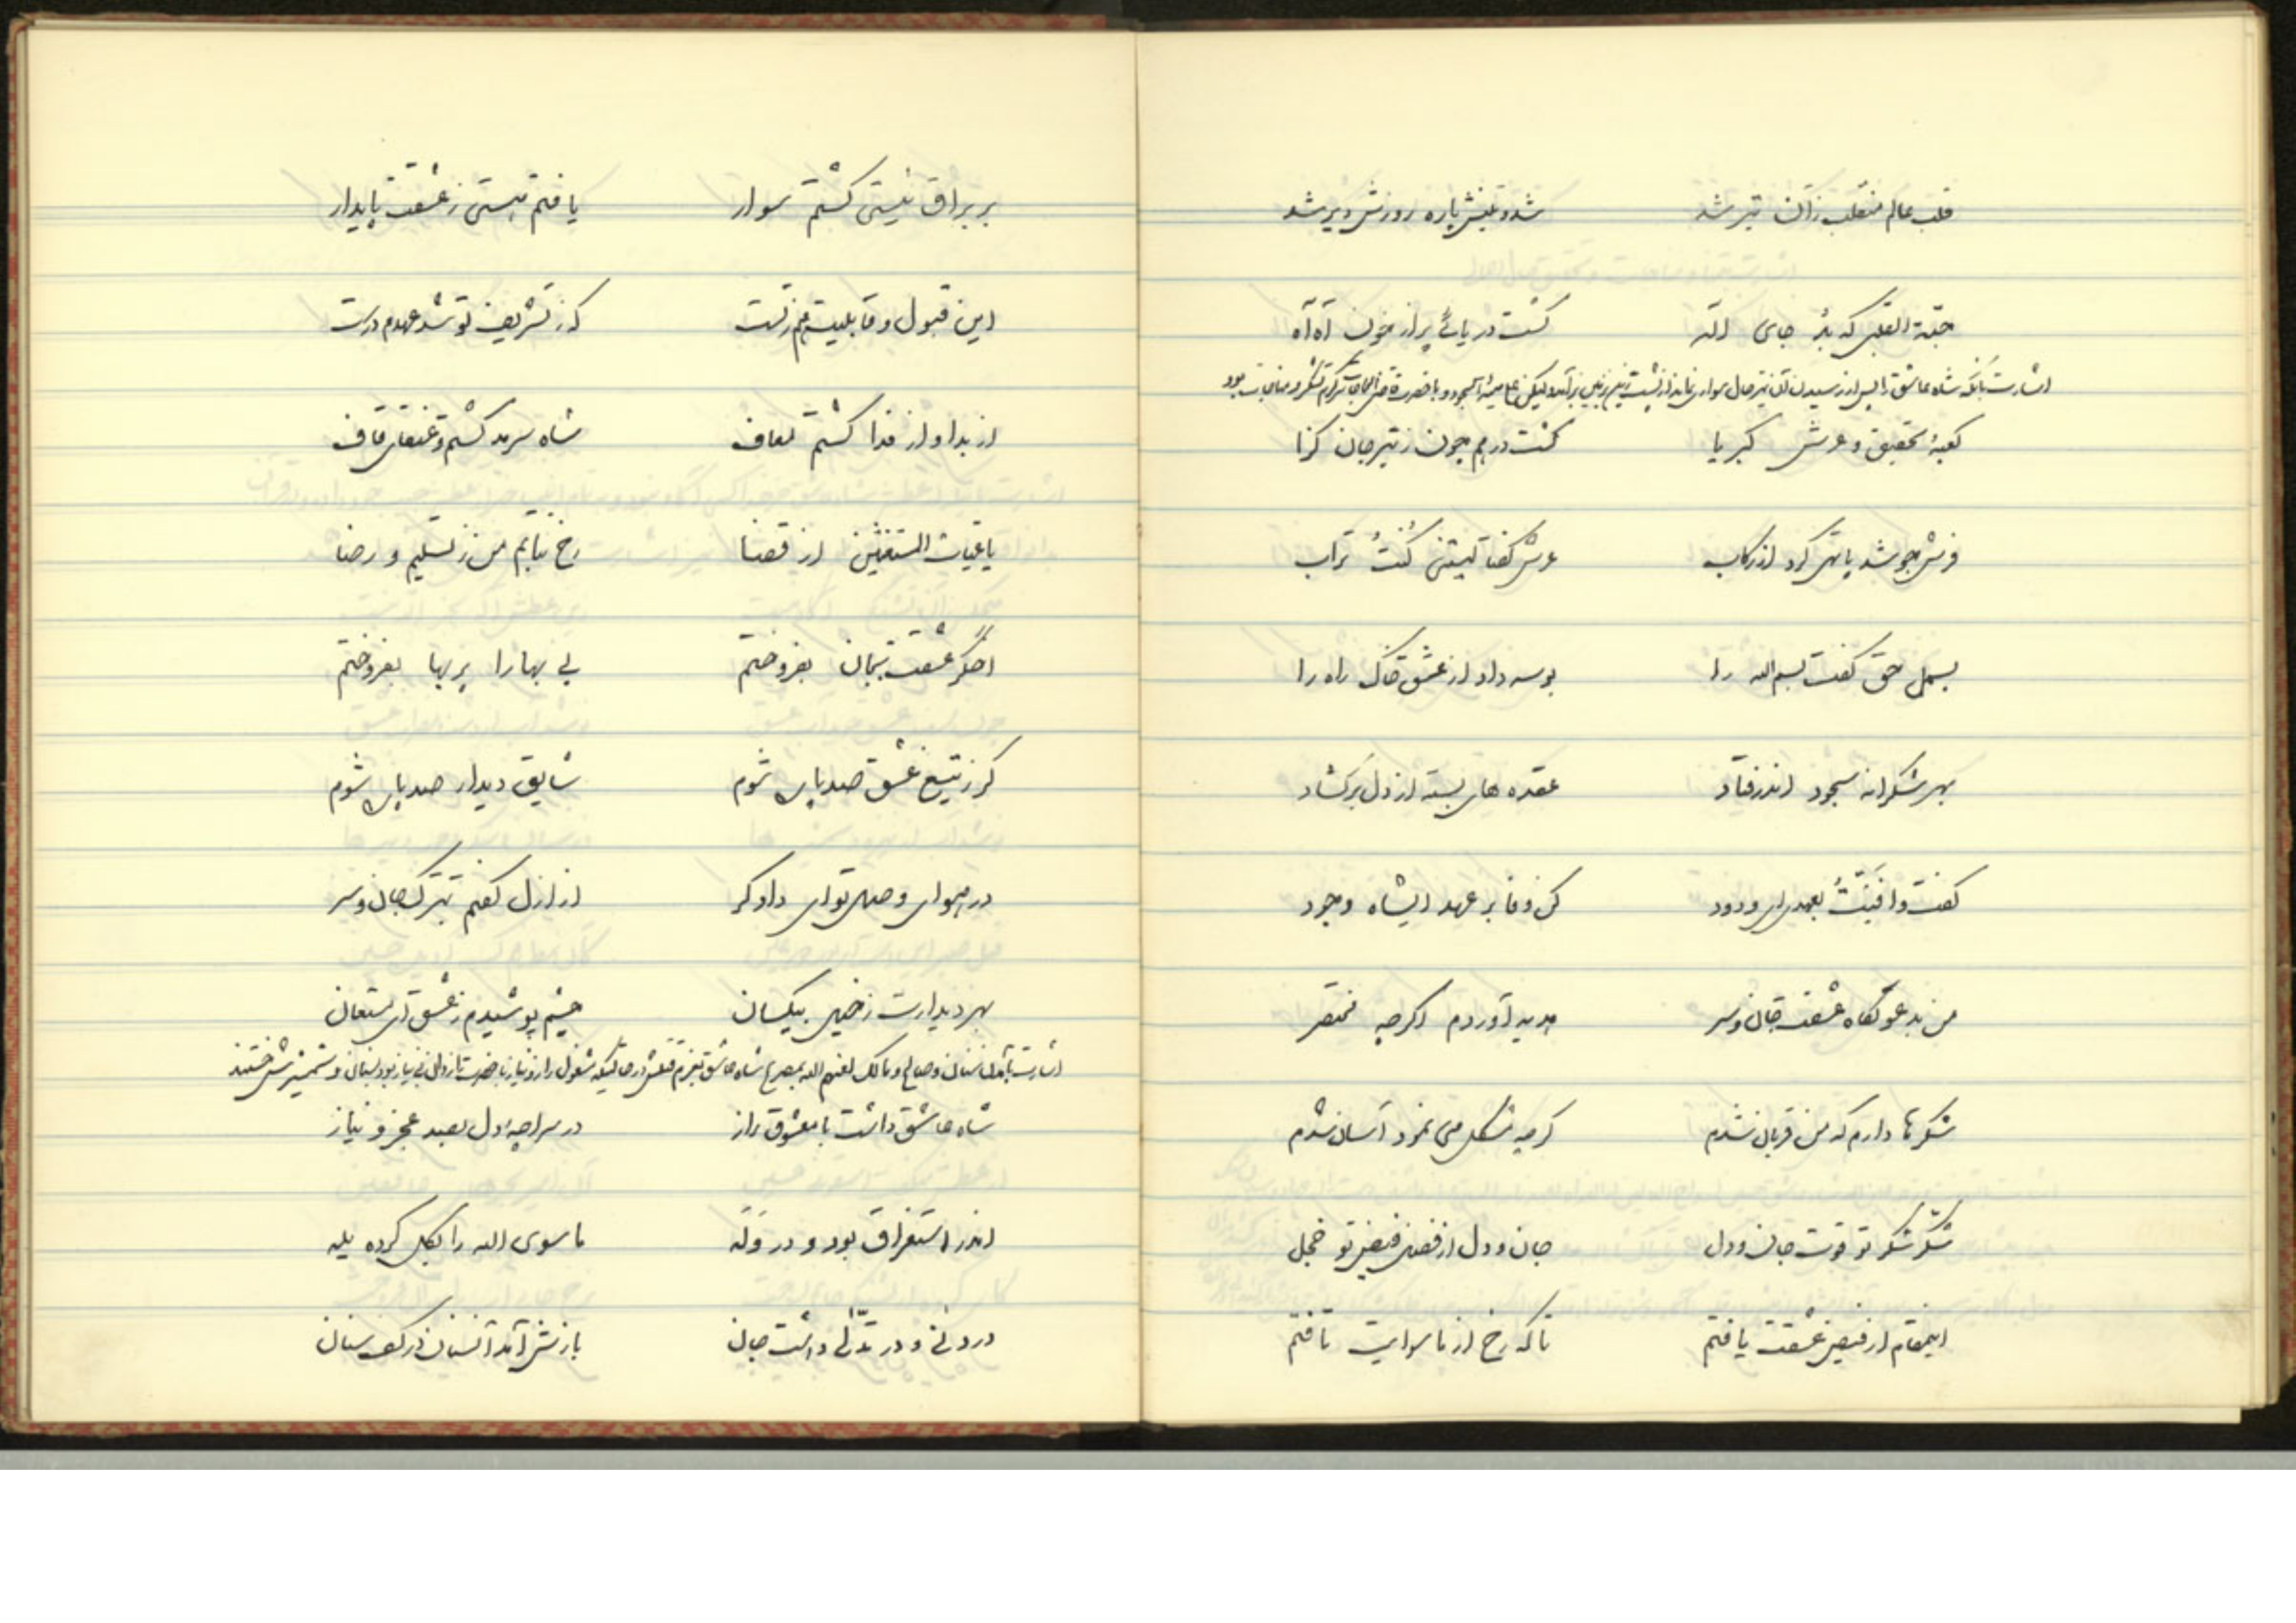 قلب عالم منقلب زان تیر شد شد و تینش پاره روزش دیر شد
جنّة القلبی که بُد جای اله گشت دریائی پر از خون آه آه
اشارت بآنکه شاه عاشق را پس از رسیدن آن تیر حال سواری نماند از پشت زین بر زمین برآمد و لیکن سجود و با حضرت قاضی الحاجات سرگرم تشکر و مناجات بود
کعبهٔ تحقیق و عرش کبریا گشت درهم چون ز تیر جان گزا
فرش چو شد پا تهی کرد از رکاب عرش گفتا لیتنی کُنتُ تراب
بسمل حق گفت بسم الله را بوسه داد از عشق خاک راه را
بهر شکرانه سجود اندر فتاد عقده های بسته از دل برگشاد
گفت وافَیتُ بعهدی ای ودود کن وفا بر عهد ایشاه وجود
من بدعوتگاه عشقت جان و سر هدیه آوردم اگرچه مختصر
شکرها دارم که من قربان شدم گرچه مشکل می نمود آسان شدم
شکر شکر تو قوت جان و دل جان و دل از فضل و فیض تو خجل
اینمقام از فیض عشقت یافتم تا که رخ از ماسوایت تافتم
بر براق نیستی گشتم سوار یافتم هستی ز عشقت پایدار
این قبول و قابلیت هم ز تست که ز تشریف تو شد عهدم درست
از بدا و از فدا گشتم معاف شاه سرمد گشتم و عنقای قاف
یا غیاث المستغثین از قضا رخ نتابم من ز تسلیم و رضا
اخگر عشقت بجان بفروختم بی بها را پر بها بفروختم
گر ز تیغ عشق صد پاره شوم شایق دیدار صد باره شوم
در هوای وصل تو ای دادگر از ازل گفتم بترک جان و سر
بهر دیدارت ز خیل بیکسان چشم پوشیدم ز عشق ای مستعان
اشارت بآمدن سنان و صالح و مالک لعنهم الله بمصرع شاه عاشق بعزم قتلش در حالتیکه مشغول راز و نیاز با حضرت بی نیاز بود سنان و شمشیرش
شاه عاشق داشت با معشوق راز در سراچهٔ دل بصد عجز و نیاز
اندر استغراق بود و در وَلَه ماسوی الله را بکل کرده یله
در دنی و در تدلّی داشت جان بازش آمد آنسنان در کف سنان